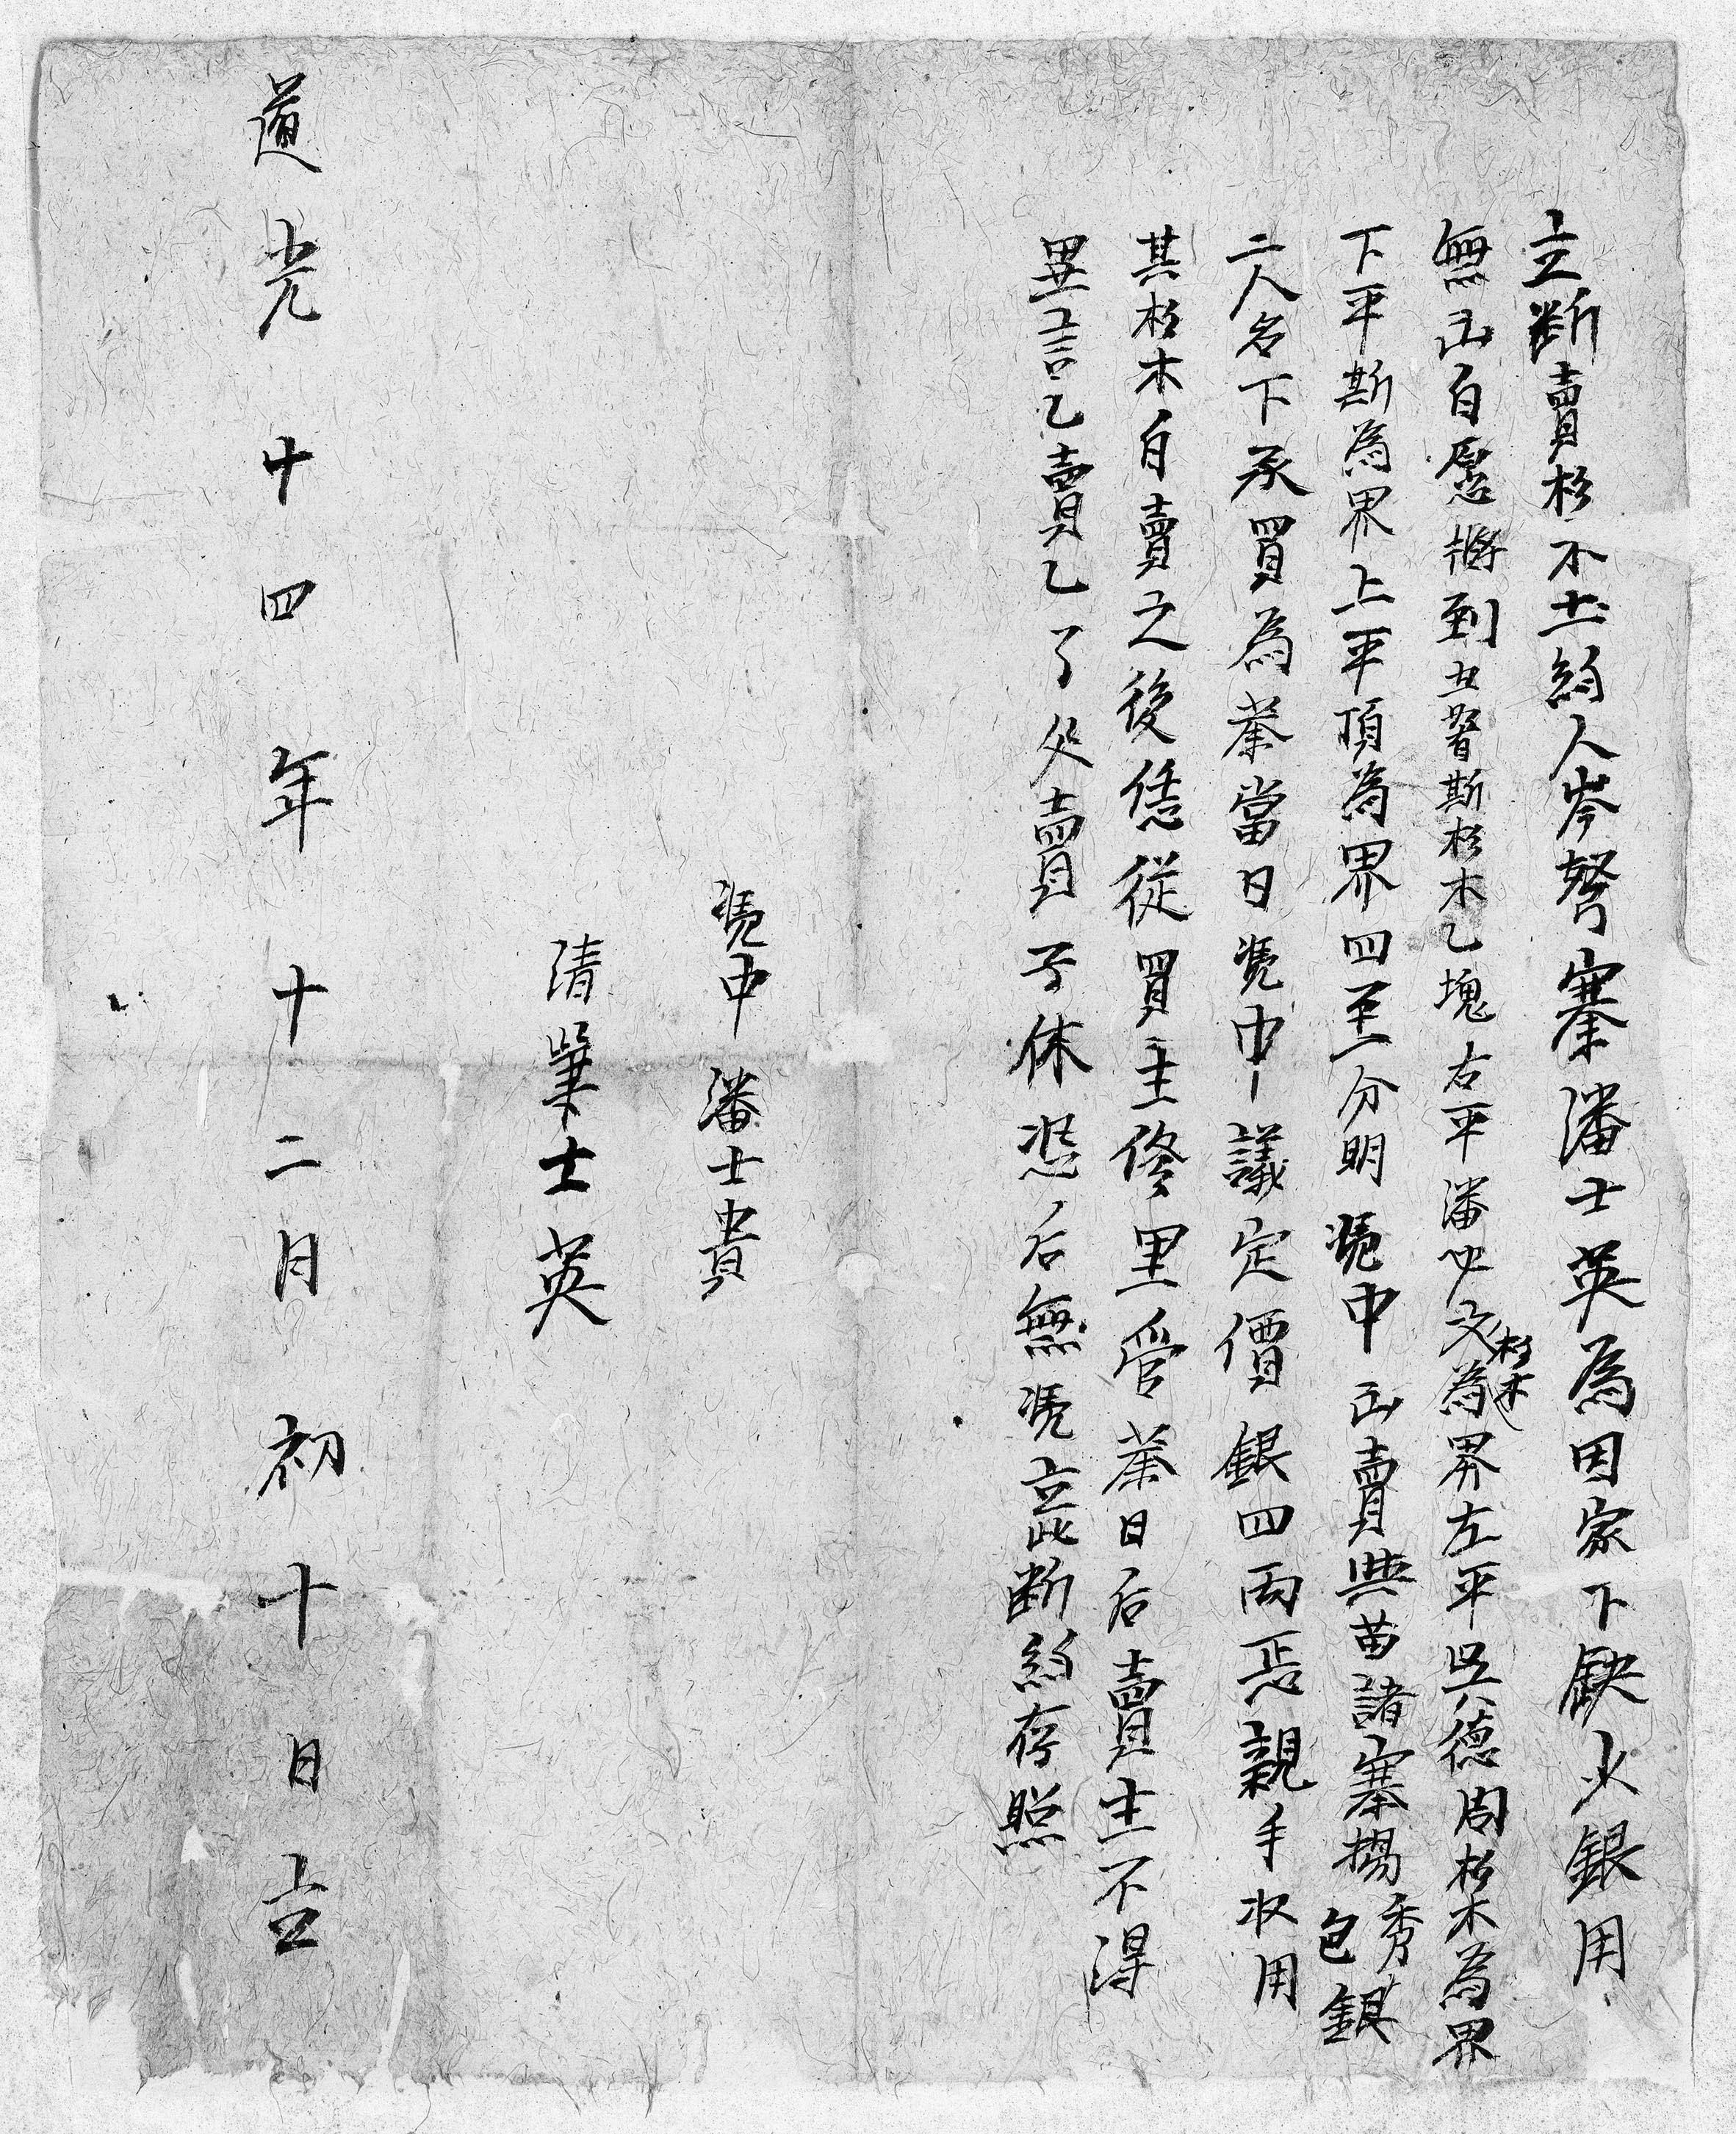 立断賣杉木土約人岑努寨潘士英為因家下缺少銀用
無出自愿將到丑努斯杉木乙塊右平潘文杉木為界左平吳德周杉木為界
下平斯為界上平頂為界四至分明憑中出賣與苗諸寨楊秀包銀
二人名下承買為業當日憑中議定價銀四両親手收用
其杉木自賣之後恁從買主修里管業日后賣主不得
異言乙賣乙了父賣子休恐后無憑立此断約存照
憑中潘士貴
請筆士英
道光十四年十二月初十日立